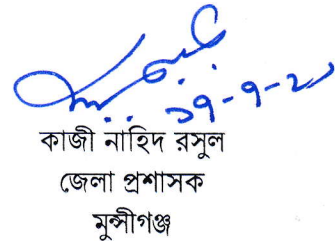 কাজী নাহিদ রসুল
জেলা প্রশাসক
মুন্সীগঞ্জ